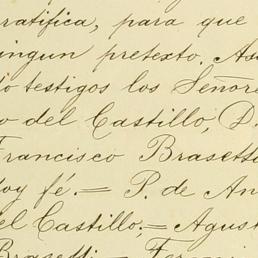 ratifica, para que
ningun pretexto. As
do testigos los Señore
o del Castillo, D.
Francisco Brasetti
doy fé.= P. de An
del Castillo,= Agust
Brasetti = Francis